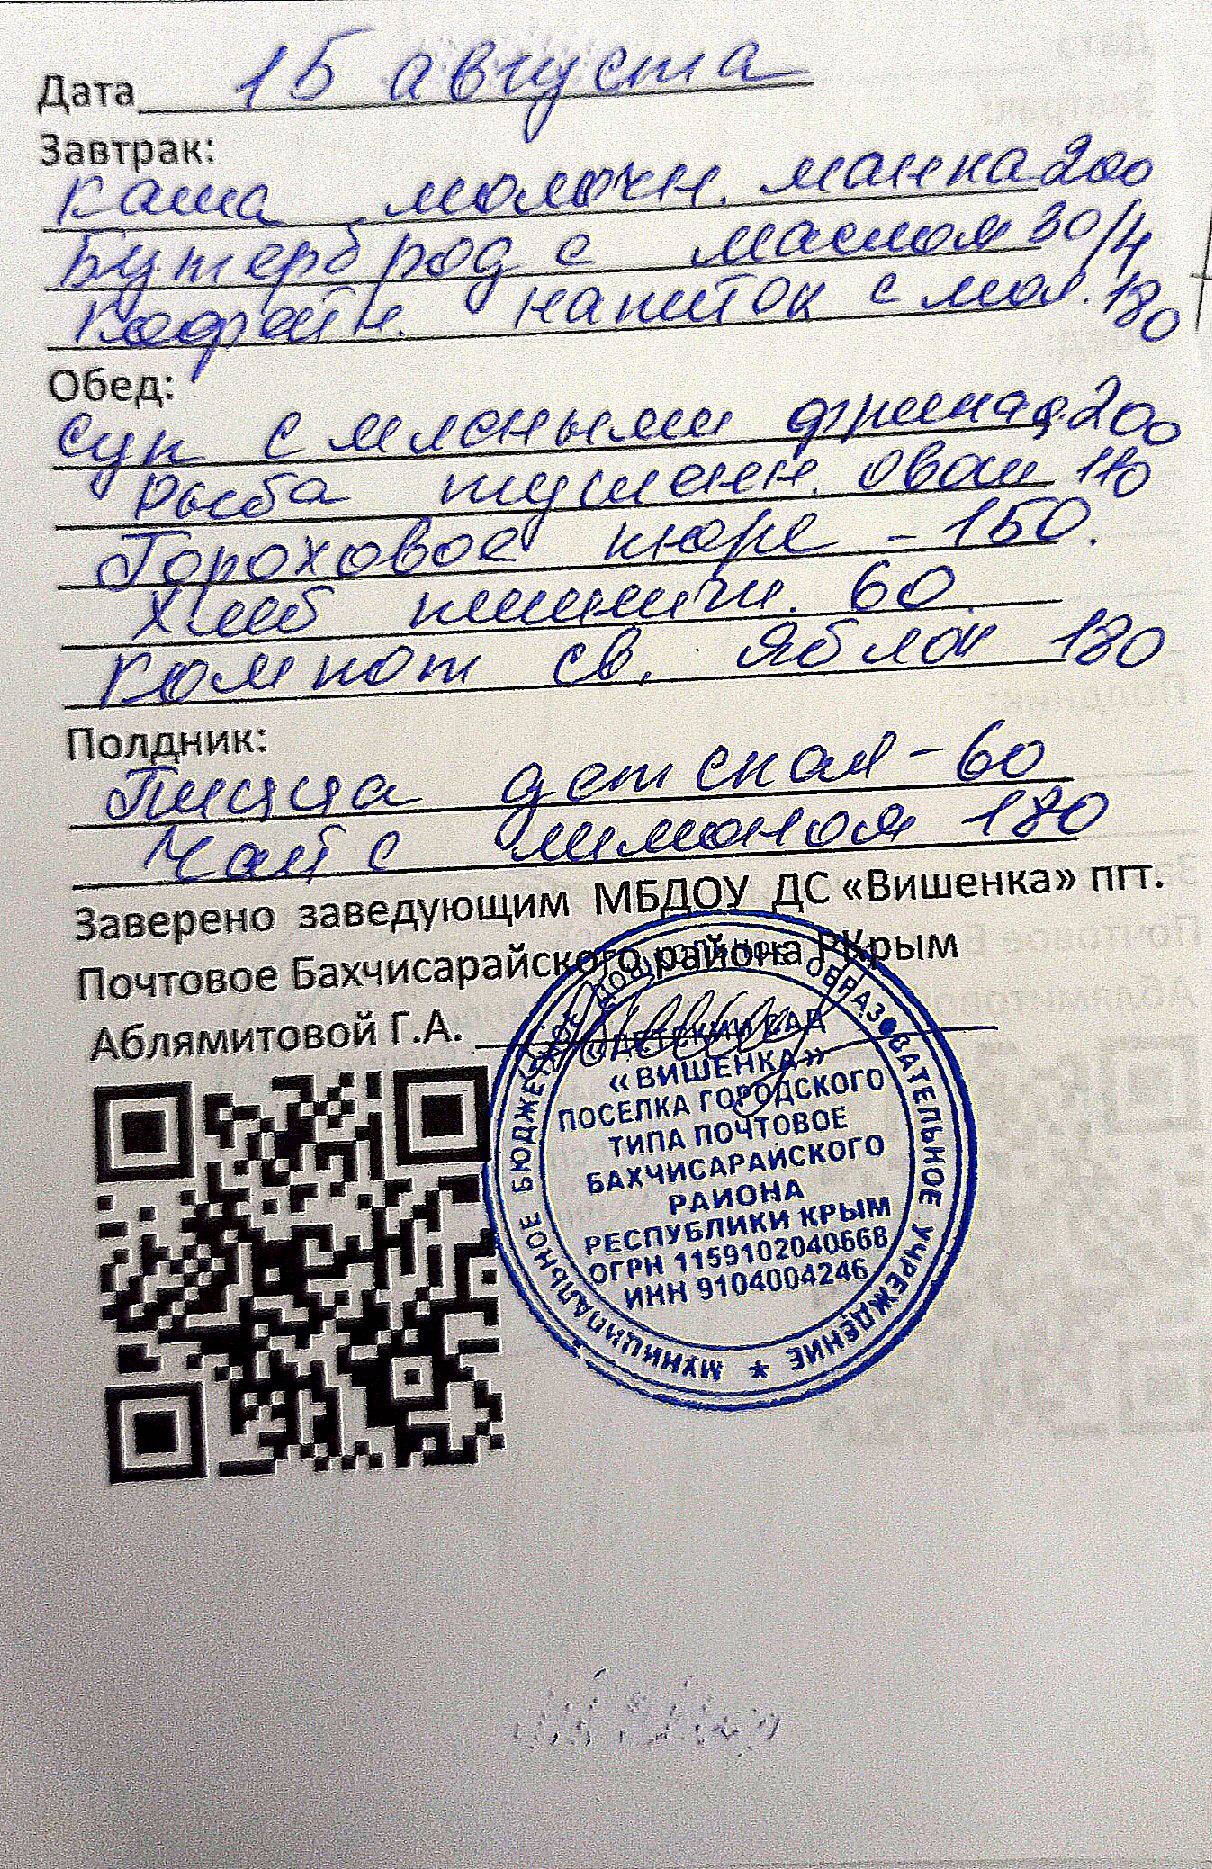 Дата 15 августа
Завтрак:
Каша молочн. манка 200
Бутерброд с маслом 30/4
Кофейн. напиток с мол. 180
Обед:
Суп с мясными фрикад. 200
Рыба тушенн. овощ 110
Гороховое пюре - 150.
Хлеб пшеничн. 60.
Компот св. яблок 180
Полдник:
Пицца детская - 60
Чай с лимоном 180
Заверено заведующим МБДОУ ДС «Вишенка» пгт.
Почтовое Бахчисарайского района РКрым
Аблямитовой Г.А.
МУНИЦИПАЛЬНОЕ БЮДЖЕТНОЕ ДОШКОЛЬНОЕ ОБРАЗОВАТЕЛЬНОЕ УЧРЕЖДЕНИЕ *
«ДЕТСКИЙ САД
«ВИШЕНКА»
ПОСЕЛКА ГОРОДСКОГО
ТИПА ПОЧТОВОЕ
БАХЧИСАРАЙСКОГО
РАЙОНА
РЕСПУБЛИКИ КРЫМ
ОГРН 1159102040668
ИНН 9104004246